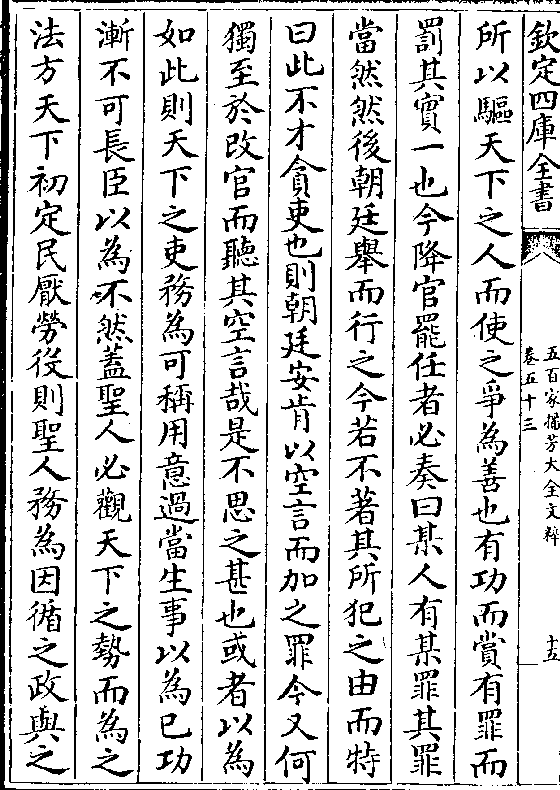 欽定四庫全書
五百家播芳大全文粹
卷五十三
十五
所以驅天下之人而使之爭為善也有功而賞有罪而
罰其實一也今降官罷任者必奏曰某人有某罪其罪
當然然後朝廷舉而行之今若不著其所犯之由而特
曰此不才貪吏也則朝廷安肯以空言而加之罪今又何
獨至於改官而聽其空言哉是不思之甚也或者以為
如此則天下之吏務為可稱用意過當生事以為已功
漸不可長臣以為不然蓋聖人必觀天下之勢而為之
法方天下初定民厭勞役則聖人務為因循之政與之